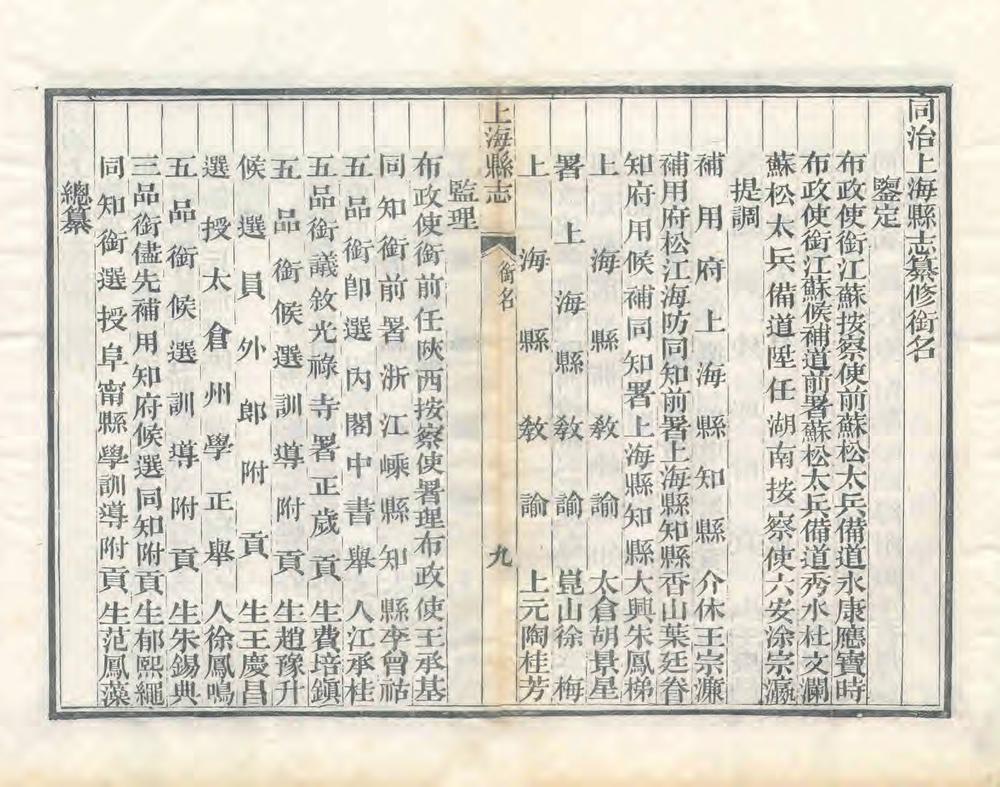 同治上海縣志纂修銜名
鑒定
布政使銜江蘇按察使前蘇松太兵備道永康應寶時
布政使銜江蘇候補道前署蘇松太兵備道秀水杜文瀾
蘇松太兵備道陞任湖南按察使六安涂宗瀛
提調
補用府上海縣知縣介休王宗濂
補用府松江海防同知前署上海縣知縣香山葉廷眷
知府用候補同知署上海縣知縣大興朱鳳梯
上海縣教諭太倉胡景星
署上海縣教諭崑山徐梅
上海縣教諭上元陶桂芳
上海縣志
銜名
九
監理
布政使銜前任陝西按察使署理布政使王承基
同知銜前署浙江嵊縣知縣李曾祜
五品銜卽選內閣中書舉人江承桂
五品銜議敘光祿寺署正歲貢生費培鎮
五品銜候選訓導附貢生趙豫升
候選員外郎附貢生王慶昌
選授太倉州學正舉人徐鳳鳴
五品銜候選訓導附貢生朱錫典
三品銜儘先補用知府候選同知附貢生郁熙繩
同知銜選授阜甯縣學訓導附貢生范鳳藻
總纂